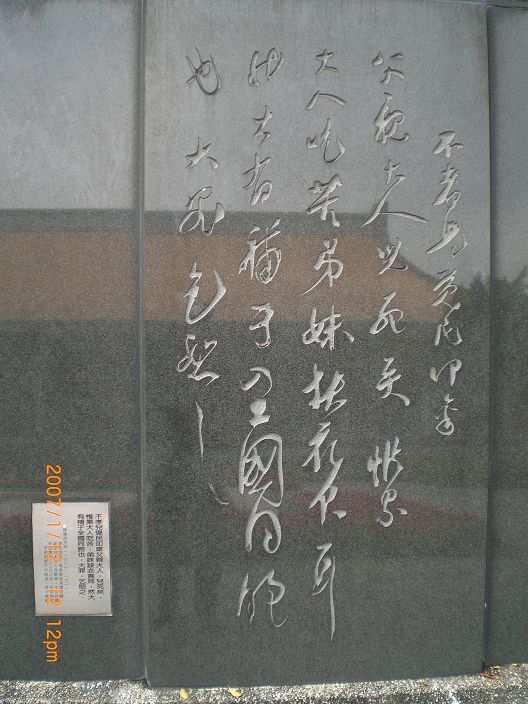 不孝兒覺民叩稟
父親大人兒死矣惟累
大人吃苦弟妹缺衣食耳
然大有補于全國同胞
也大罪乞恕之
不孝兒覺民叩稟父親大人，兒死矣，
惟累大人吃苦，弟妹缺衣食耳，然大
有補于全國同胞也，大罪，乞恕之。
2007/1/12 12:12pm